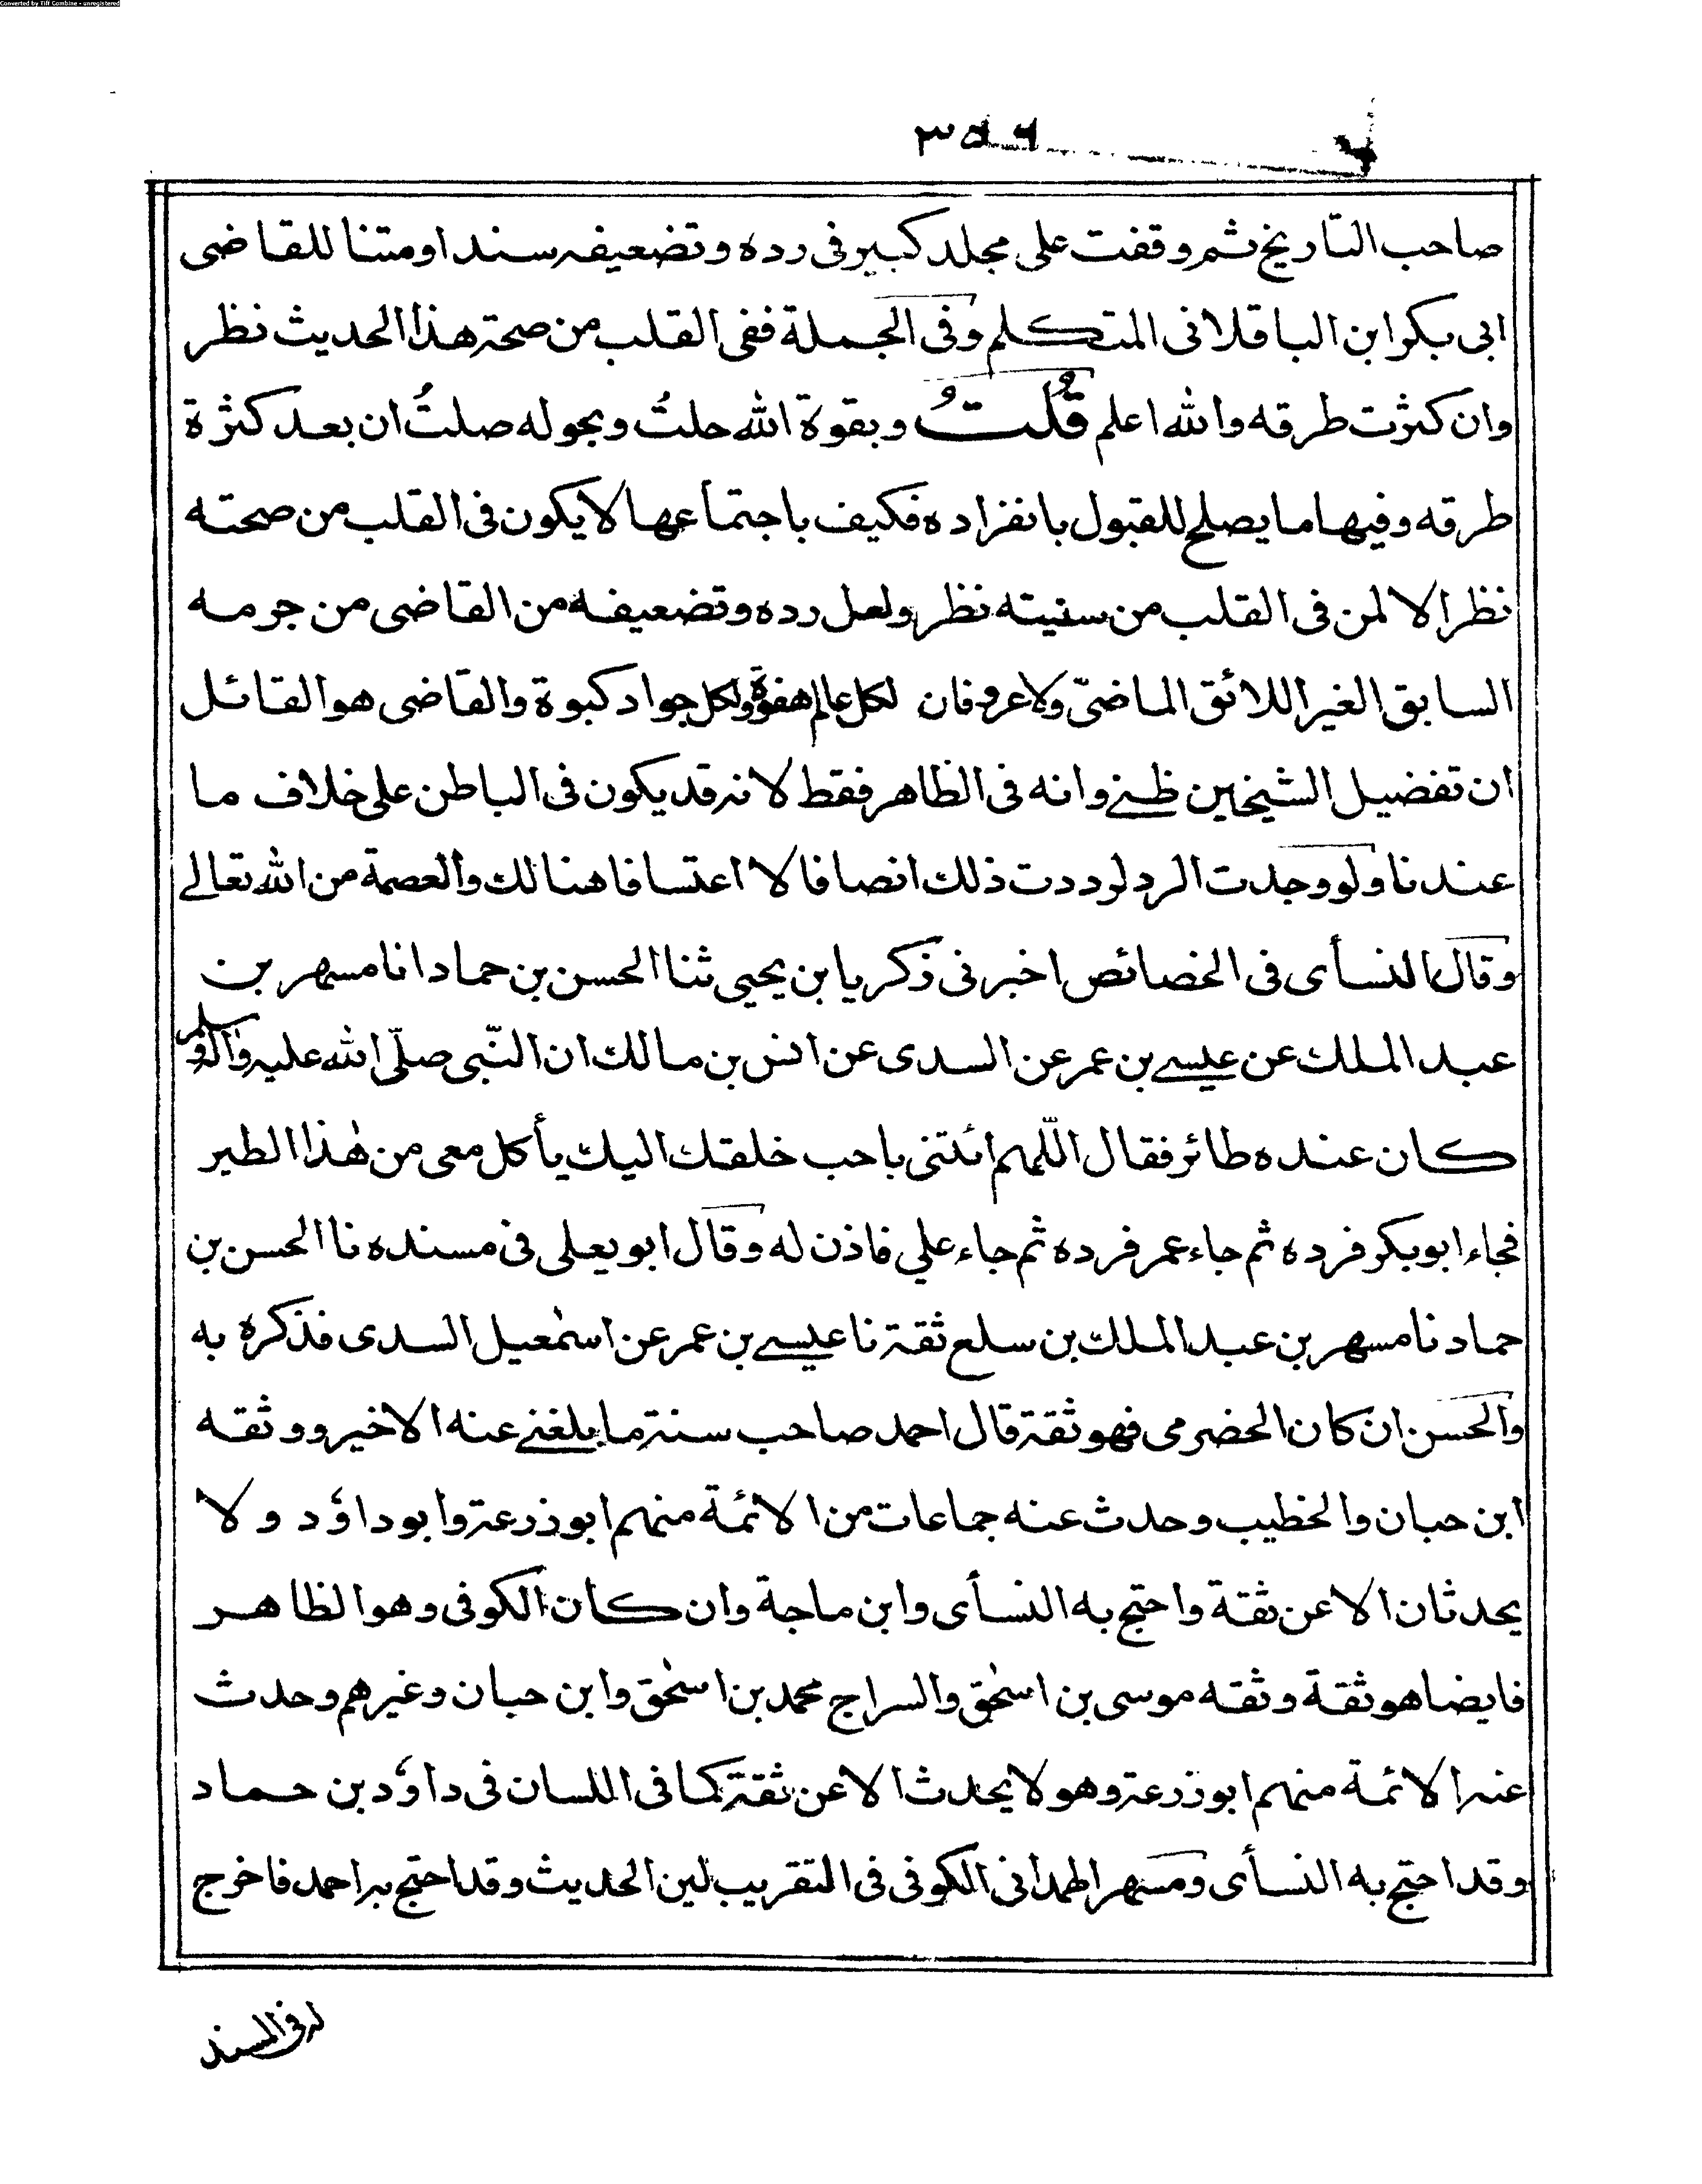 Converted by Tiff Combine - unregistered
صاحب التّاريخ ثم وقفت على مجلد كبير فى رده وتضعيفه سندا ومتنا للقاضى
ابى بكر ابن الباقلانى المتكلم وفى الجملة ففى القلب من صحة هذا الحديث نظر
وان كثرت طرقه والله اعلم قُلتُ وبقوة الله حلتُ وبحوله صلتُ ان بعد كثرة
طرقه وفيها ما يصلح للقبول بانفراده فكيف باجتماعها لا يكون فى القلب من صحته
نظر الا لمن فى القلب من سنيته نظر ولعل رده وتضعيفه من القاضى من جرمه
السابق الغير اللائق الماضىّ ولا عرو فان لكل عالم هفوة ولكل جواد كبوة والقاضى هو القائل
ان تفضيل الشيخين ظنے وانه فى الظاهر فقط لانه قد يكون فى الباطن على خلاف ما
عندنا ولو وجدت الرد لرددت ذلك انصافا لا اعتسافا هنالك والعصمة من الله تعالے
وقال النسأى فى الخصائص اخبرنى ذكريا بن يحيى ثنا الحسن بن حماد انا مسهر بن
عبد الملك عن عيسے بن عمر عن السدى عن انس بن مالك ان النّبى صلّى الله عليه واله وسلم
كان عنده طائر فقال اللّٰهم ائتنى باحب خلقك اليك يأكل معى من هٰذا الطير
فجاء ابو بكر فرده ثم جاء عمر فرده ثم جاء علي فاذن له وقال ابو يعلى فى مسنده نا الحسن بن
حماد نا مسهر بن عبد الملك بن سلع ثقة نا عيسے بن عمر عن اسمٰعيل السدى فذكره به
والحسن ان كان الحضرمى فهو ثقة قال احمد صاحب سنة ما يلغنے عنه الا خير ووثقه
ابن حبان والخطيب وحدث عنه جماعات من الائمة منهم ابو زرعة وابو داؤد ولا
يحدثان الا عن ثقة واحتج به النسأى وابن ماجة وان كان الكوفى وهو الظاهر
فايضا هو ثقة وثقه موسى بن اسحٰق والسراج محمد بن اسحٰق وابن حبان وغيرهم وحدث
عنه الائمة منهم ابو زرعة وهو لا يحدث الا عن ثقة كما فى اللسان فى داؤد بن حماد
وقد احتج به النسأى ومسهر الهمدانى الكوفى فى التقريب لين الحديث وقد احتج به احمد فاخرج
له فى المسند